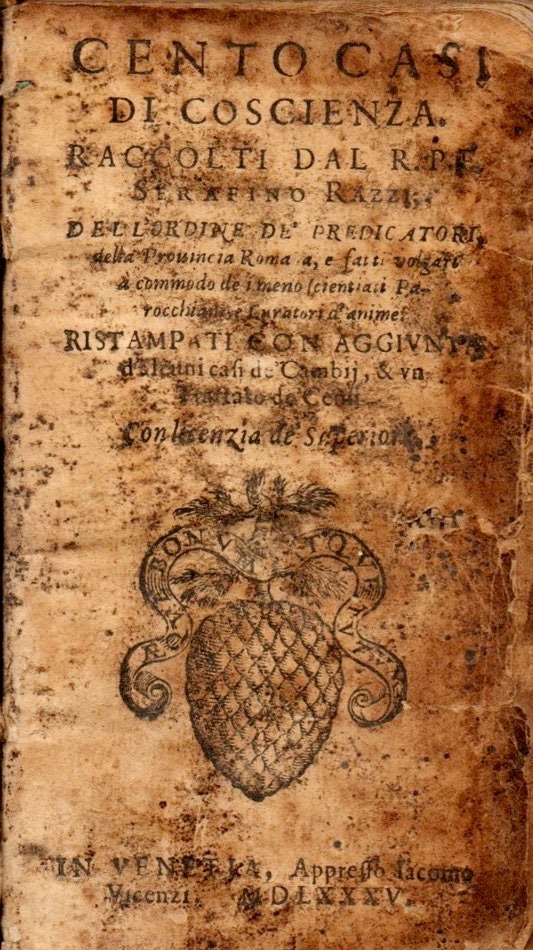 CENTO CASI
DI COSCIENZA.
RACCOLTI DAL R. P. F.
SERAFINO RAZZI,
DELL'ORDINE DE' PREDICATORI,
della Prouincia Romana, e fatti volgari
à commodo de i meno scientiati Pa-
rocchiani, e Curatori d'anime.
RISTAMPATI CON AGGIVNTA
d'alcuni casi de Cambij, & vn
Trattato de Censi.
Con licenzia de' Superiori.
BONVM
TOQVE
IN VENETIA, Appresso Iacomo
Vicenzi. MDLXXXV.